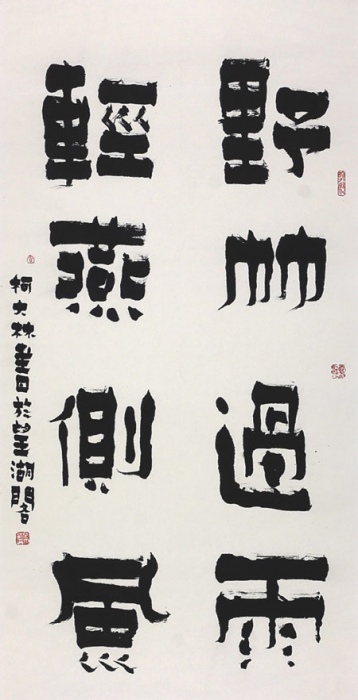 野竹過雨
輕燕側風
柯大林書於望湖閣